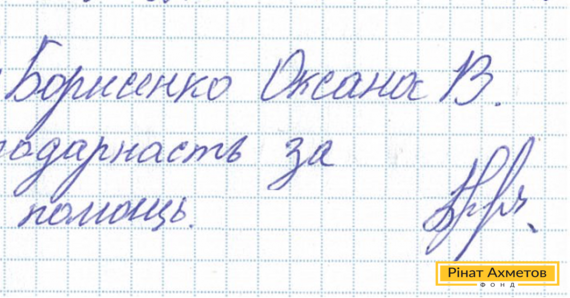 Борисенко Оксана В.
одарнасть за
помощь.
Рінат Ахметов
ФОНД